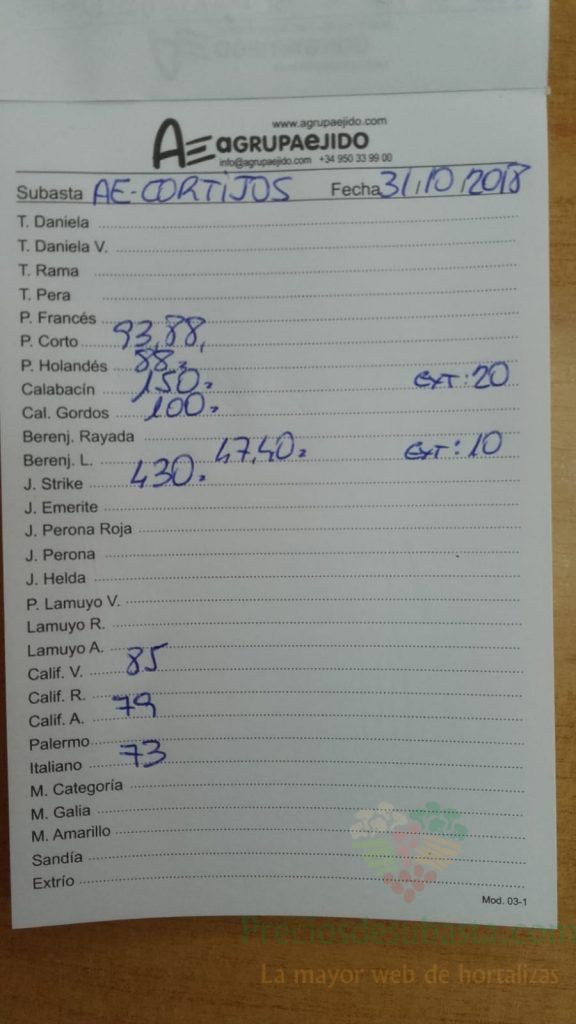 www.agrupaejido.com
AE AGRUPAEJIDO
info@agrupaejido.com +34 950 33 99 00
Subasta AE-CORTIJOS Fecha 31/10/2018
T. Daniela
T. Daniela V.
T. Rama
T. Pera
P. Francés
P. Corto 93,88,
P. Holandés 88,
Calabacín 150, EXT: 20
Cal. Gordos 100,
Berenj. Rayada
Berenj. L. 47,40, EXT: 10
J. Strike 430,
J. Emerite
J. Perona Roja
J. Perona
J. Helda
P. Lamuyo V.
Lamuyo R.
Lamuyo A.
Calif. V. 85
Calif. R.
Calif. A. 79
Palermo
Italiano 73
M. Categoría
M. Galia
M. Amarillo
Sandía
Extrío
Mod. 03-1
Preciosdesubasta.com
La mayor web de hortalizas